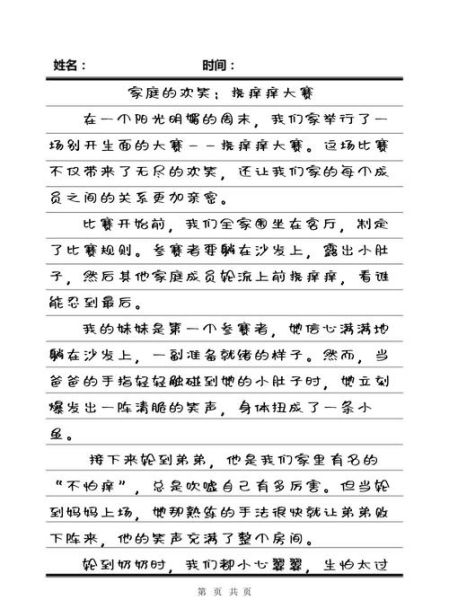 姓名： 时间：
家庭的欢笑：挠痒痒大赛
在一个阳光明媚的周末，我们家举行了一
场别开生面的大赛--挠痒痒大赛。这场比赛
不仅带来了无尽的欢笑，还让我们家的每个成
员之间的关系更加亲密。
比赛开始前，我们全家围坐在客厅，制定
了比赛规则。参赛者要躺在沙发上，露出小肚
子，然后其他家庭成员轮流上前挠痒痒，看谁
能忍到最后。
我的妹妹是第一个参赛者，她信心满满地
躺在沙发上，一副准备就绪的样子。然而，当
爸爸的手指轻轻触碰到她的小肚子时，她立刻
爆发出一阵清脆的笑声，身体扭成了一条小
鱼。
接下来轮到弟弟，他是我们家里有名的
“不怕痒”，总是吹嘘自己有多厉害。但当轮
到妈妈上场，她那熟练的手法很快就让弟弟败
下阵来，他的笑声充满了整个房间。
轮到奶奶时，我们都小心翼翼，生怕太过
第 页 共 页